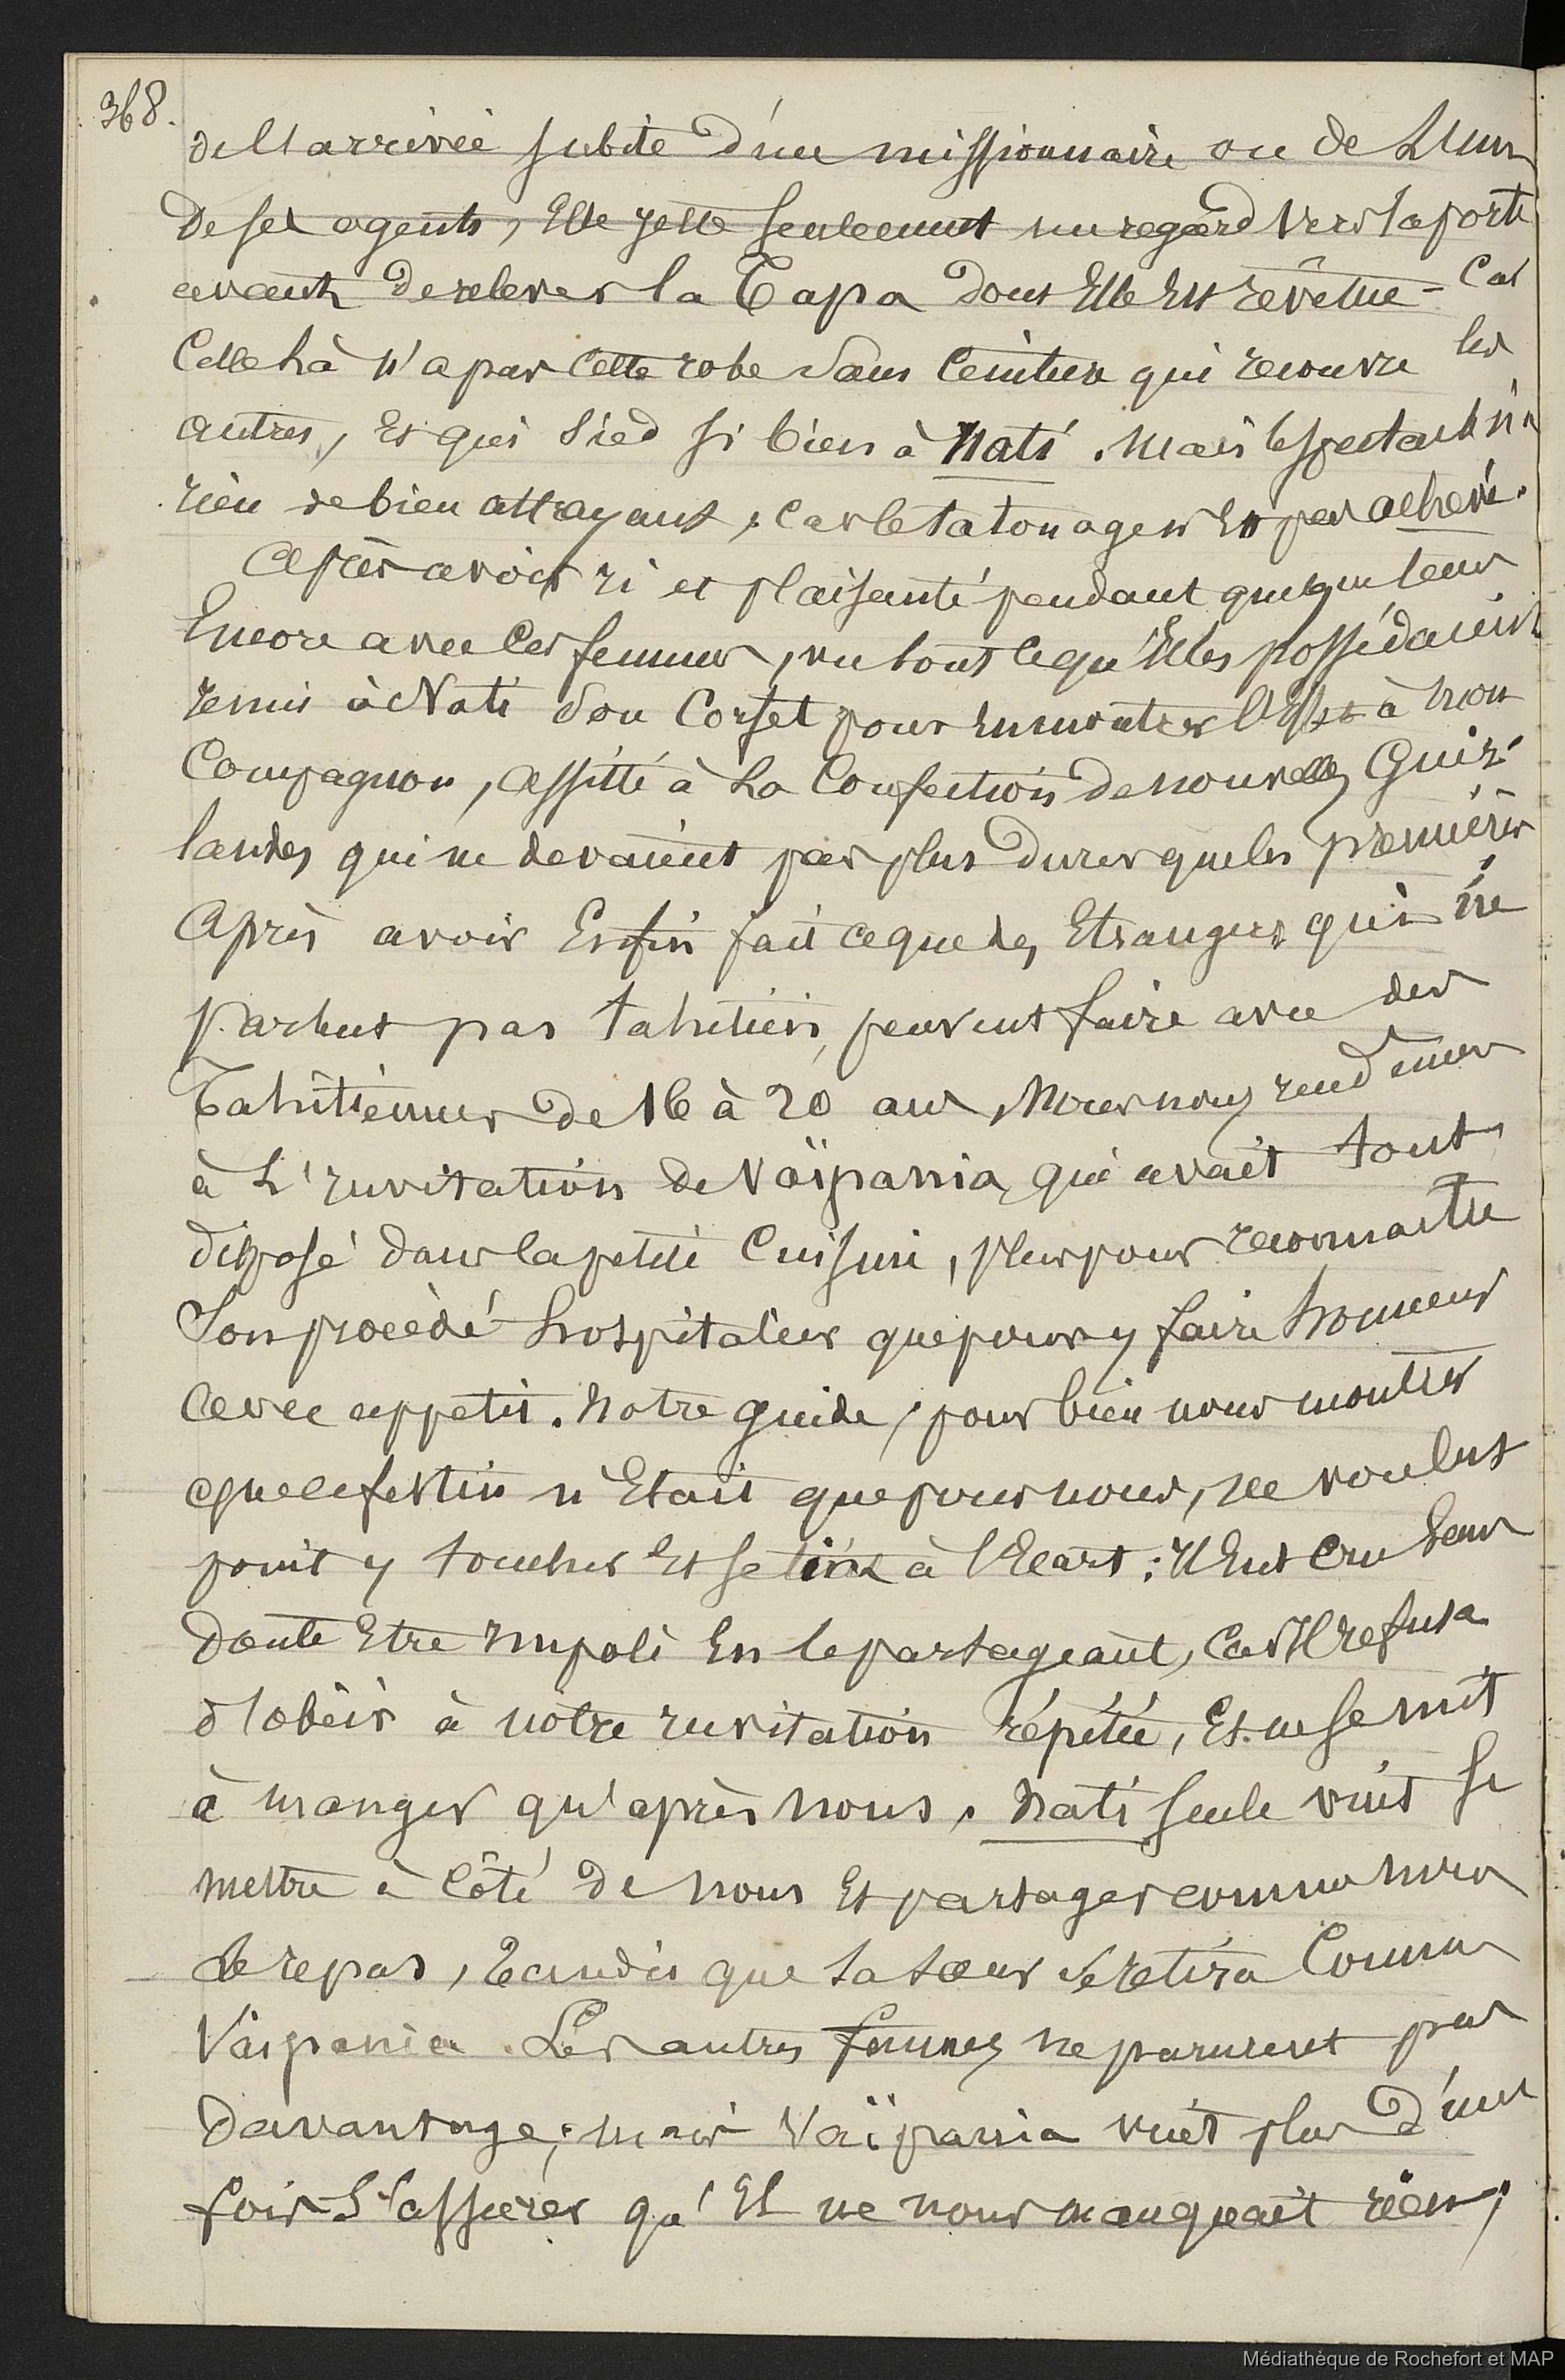 368.
de l'arrivée subite d'un missionnaire ou de L'un
de ses agents, Elle jette seulement un regard vers la porte
avant de relever la Tapa dont Elle Est revêtue - Car
Celle là N'a pas Cette robe sans Ceinture qui recouvre les
autres, Et qui sied si bien à Nati. Mais le spectacle n'a
rien de bien attrayant, car le tatouage n'Est pas achevé.
Après avoir ri et plaisanté pendant quelque tems
Encore avec les femmes, vu tout ce qu'Elles possédaient
remis à Nati son Corset pour en montrer l'Effet à mon
Compagnon, assisté à La Confection de nouvelles Guir
landes qui ne devaient pas plus durer que les premières
Après avoir Enfin fait ce que des Etrangers qui ne
parlent pas tahitien, peuvent faire avec des
Tahitiennes de 16 à 20 ans, Nous nous rendîmes
à L'invitation de Vaïpania, qui avait tout
disposé dans la petite Cuisine, plus pour reconnaitre
Son procédé hospitalier que pour y faire honneur
avec appetit. Notre guide, pour bien nous montrer
que le festin n'Etait que pour nous, ne voulut
point y toucher Et se tint à l'Ecart : Il Eut Cru sans
doute Etre impoli En le partageant, Car Il refusa
d'obéir à nôtre invitation répétée, Et ne se mit
à manger qu'après Nous. Nati seule vint se
mettre à Côté de nous Et partager comme nous
le repas, tandis que sa sœur se retira Comme
Vaïpania. Les autres femmes ne parurent pas
davantage ; mais Vaïpania vint plus d'une
fois S'assurer qu'Il ne nous manquait rien ;
Médiathèque de Rochefort et MAP